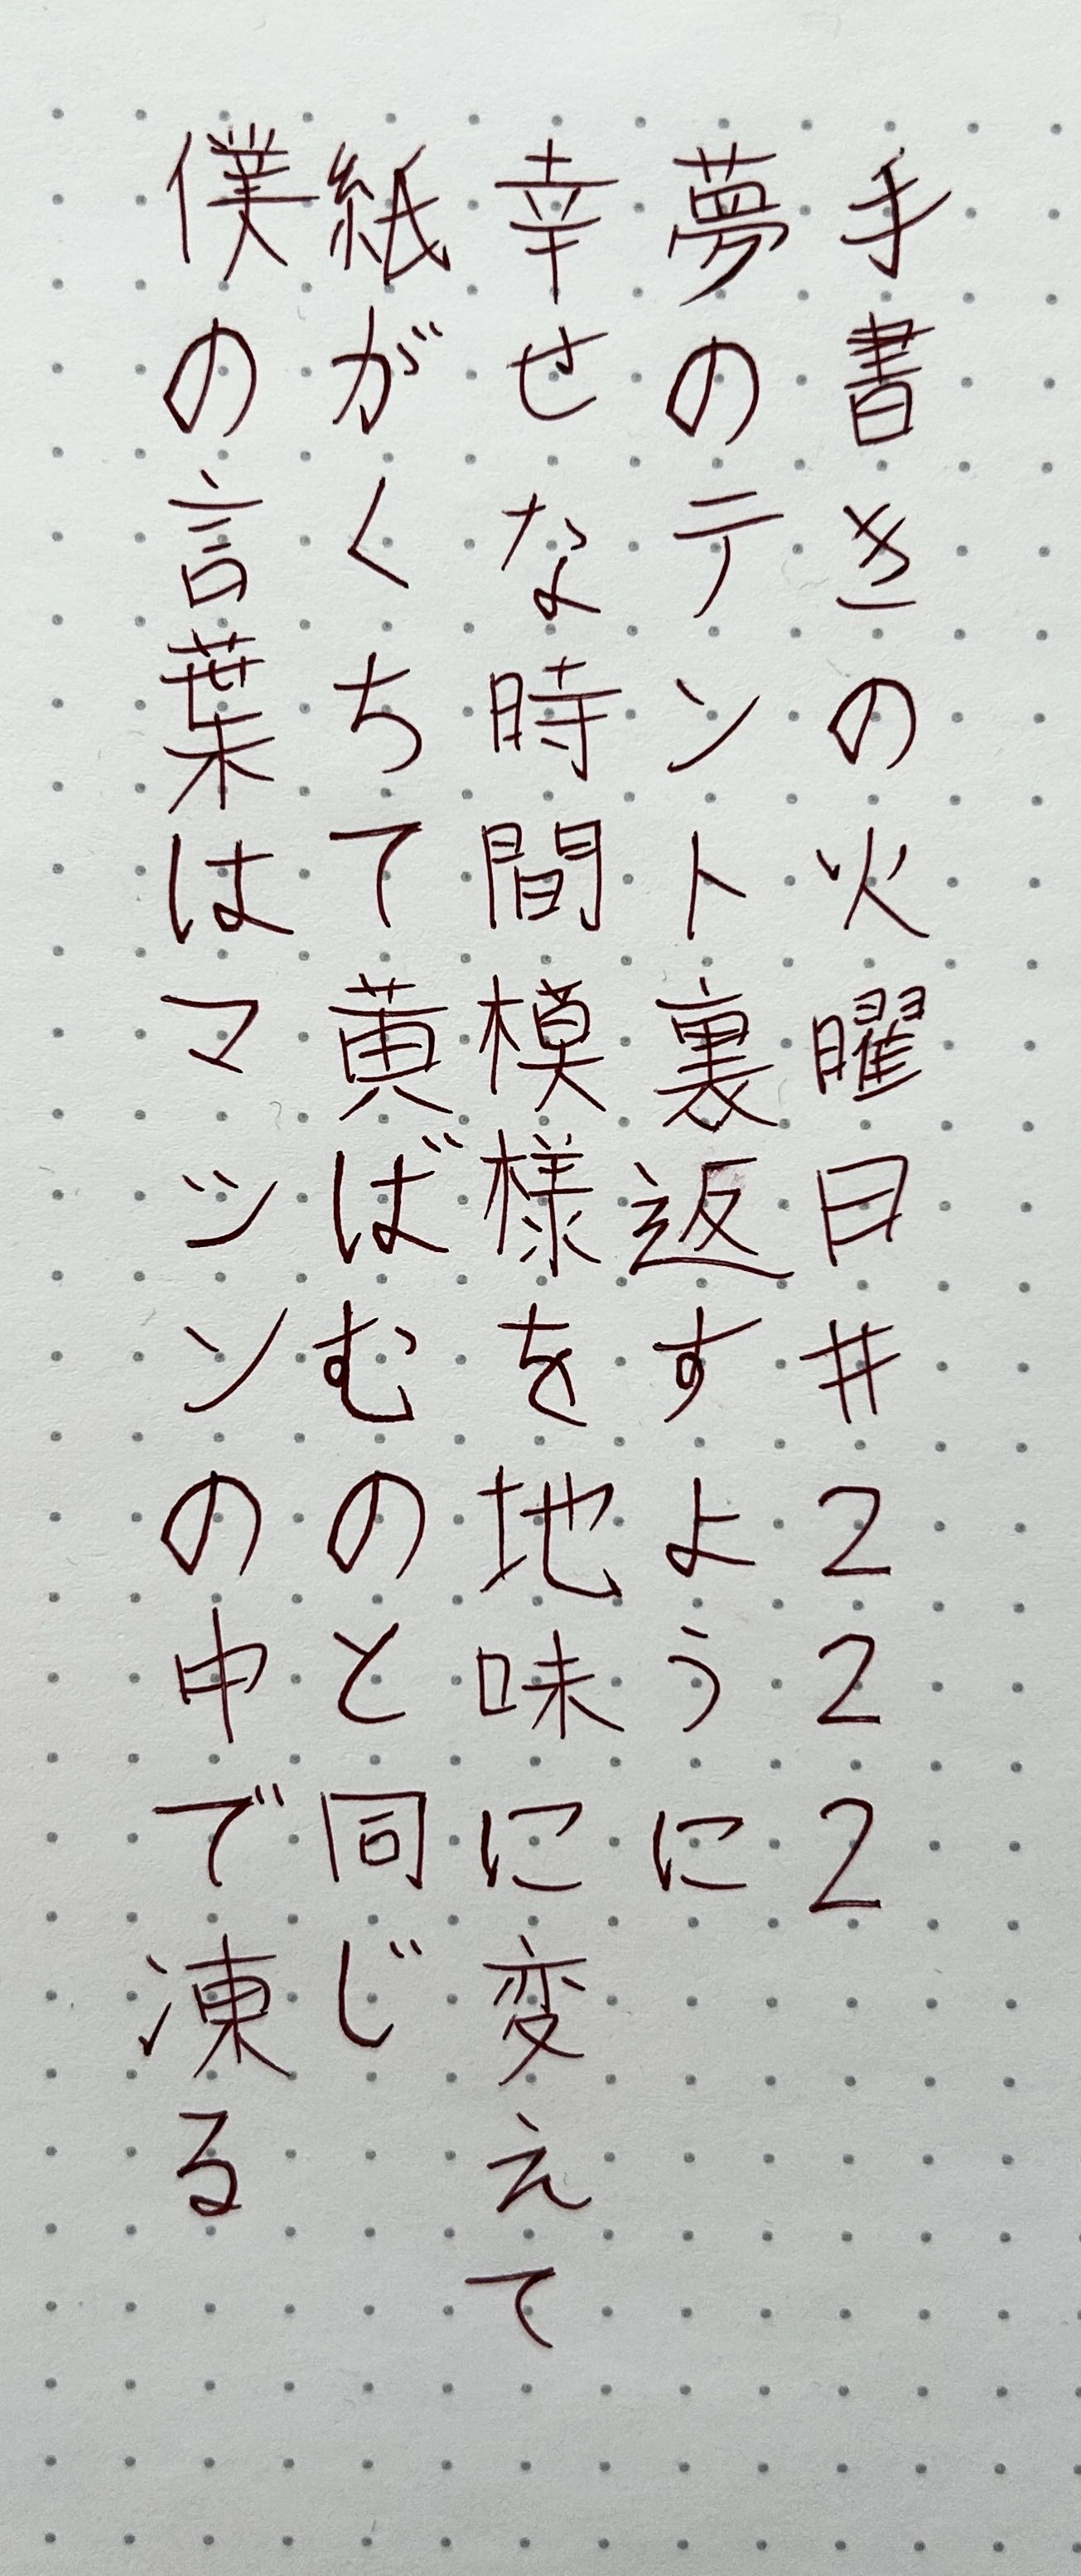 手書きの火曜日#222
夢のテント裏返すように
幸せな時間模様を地味に変えて
紙がくちて黄ばむのと同じ
僕の言葉はマッソの中で凍る